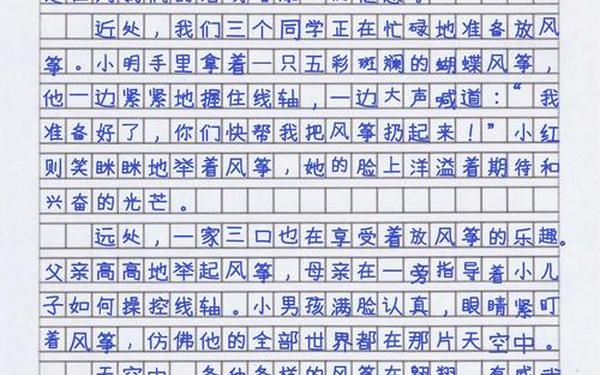 近处，我们三个同学正在忙碌地准备放风
筝。小明手里拿着一只五彩斑斓的蝴蝶风筝，
他一边紧紧地握住线轴，一边大声喊道：“我
准备好了，你们快帮我把风筝扔起来！”小红
则笑眯眯地举着风筝，她的脸上洋溢着期待和
兴奋的光芒。
远处，一家三口也在享受着放风筝的乐趣。
父亲高高地举起风筝，母亲在一旁指导着小儿
子如何操控线轴。小男孩满脸认真，眼睛紧盯
着风筝，仿佛他的全部世界都在那片天空中。